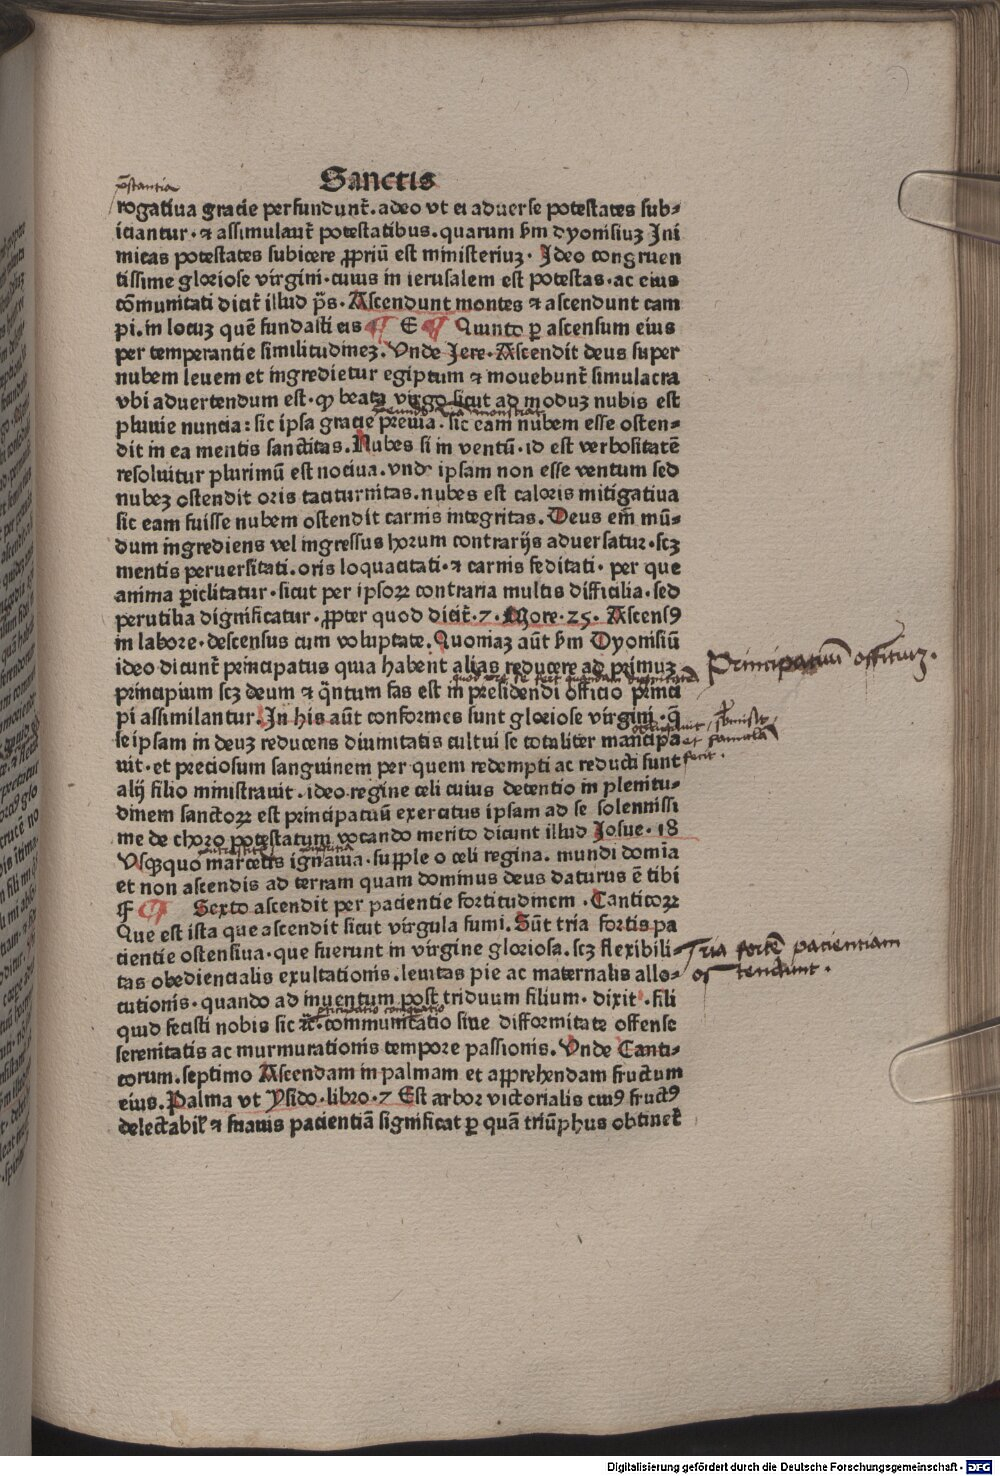 Sanctis
p̄stantia
rogatiua gracie perfundunt̄. adeo vt ei aduerse potestates sub⸗
iciantur. ⁊ assimulant̄ potestatibus. quarum b̄m dyonisiuʒ Ini
micas potestates subicere ꝓpriū est ministeriuʒ. Ideo congruen
tissime gloriose virgini. cuius in ierusalem est potestas. ac eius
cōmunitati dicit̄ illud p̄s. Ascendunt montes ⁊ ascendunt cam
pi. in locuʒ quē fundasti eis ¶ E ¶ Quinto ꝑ ascensum eius
per temperantie similitudineʒ. Vnde Jere. Ascendit deus super
nubem leuem et ingredietur egiptum ⁊ mouebunt̄ simulacra
vbi aduertendum est. ꝙ beata virgo sicut ad moduʒ nubis est
pluuie nuncia: sic ipsa gracie preuia. sic eam nubem esse osten⸗
dit in ea mentis sanctitas. Nubes si in ventū. id est verbositatē
resoluitur plurimū est nociua. vnde ipsam non esse ventum sed
nubeʒ ostendit oris taciturnitas. nubes est caloris mitigatiua
sic eam fuisse nubem ostendit carnis integritas. Deus em̄ mū⸗
dum ingrediens vel ingressus horum contrarijs aduersatur. scʒ
mentis peruersitati. oris loquacitati. ⁊ carnis feditati. per que
anima ꝑiclitatur. sicut per ipsoꝝ contraria multis difficilia. sed
perutilia dignificatur. ꝓpter quod dicit̄. 7. More. 25. Ascensꝰ
in labore. descensus cum voluptate. Quoniaʒ aūt b̄m Dyonisiū
ideo dicunt̄ principatus quia habent alias reducere ad primuʒ
Principatuum officiuʒ.
principium scʒ deum ⁊ q̄ntum fas est in presidendi officio princi
pi assimilantur. In his aūt conformes sunt gloriose virgini. q̄
se ipsam in deuʒ reducens diuinitatis cultui se totaliter mancipa
et famulā
uit. et preciosum sanguinem per quem redempti ac reducti sunt
fecit.
alij filio ministrauit. ideo regine celi cuius detentio in plenitu⸗
dinem sanctoꝝ est principatuū exercitus ipsam ad se solennissi
me de choro potestatum vocando merito dicunt illud Josue. 18
Vsqꝫquo marcetis ignauia. supple o celi regina. mundi domīa
et non ascendis ad terram quam dominus deus daturus ē tibi
F ¶ Sexto ascendit per pacientie fortitudinem. Canticoꝝ
Que est ista que ascendit sicut virgula fumi. Sūt tria fortis pa
cientie ostensiua. que fuerunt in virgine gloriosa. scʒ flexibili⸗
Tria fortē pacientiam
tas obediencialis exultationis. leuitas pie ac maternalis allo⸗
ostendunt.
cutionis. quando ad inuentum post triduum filium. dixit. fili
quid fecisti nobis sic ⁊c̄. communicatio siue difformitate offense
serenitatis ac murmurationis tempore passionis. Vnde Canti⸗
corum. septimo Ascendam in palmam et apprehendam fructum
eius. Palma vt Ysido. libro. 7 Est arbor victorialis cuiꝰ fructꝰ
delectabil̄ ⁊ suauis pacientiā significat ꝑ quā triūphus obtinet̄
Digitalisierung gefördert durch die Deutsche Forschungsgemeinschaft · DFG